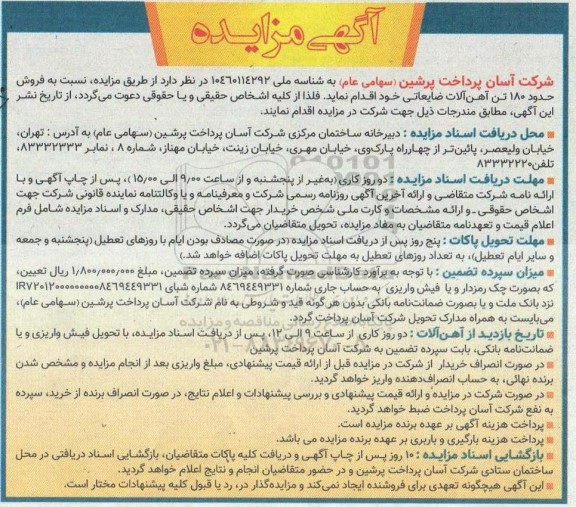 آگهی مزایده
شرکت آسان پرداخت پرشین (سهامی عام) به شناسه ملی ۱۰۴۶۰۱۱۴۲۹۲ در نظر دارد از طریق مزایده، نسبت به فروش
حدود ۱۸۰ تن آهن‌آلات ضایعاتی خود اقدام نماید. فلذا از کلیه اشخاص حقیقی و یا حقوقی دعوت می‌گردد، از تاریخ نشر
این آگهی، مطابق مندرجات ذیل جهت شرکت در مزایده اقدام نمایند.
■ محل دریافت اسناد مزایده : دبیرخانه ساختمان مرکزی شرکت آسان پرداخت پرشین (سهامی عام) به آدرس : تهران،
خیابان ولیعصر، پائین‌تر از چهارراه پارک‌وی، خیابان مهری، خیابان زینت، خیابان مهناز، شماره ۸ ، نمابر ۸۳۳۳۲۳۳۳،
تلفن ۸۳۳۳۲۲۲۰
■ مهلت دریافت اسناد مزایده : دو روز کاری (به‌غیر از پنجشنبه و از ساعت ۹٫۰۰ الی ۱۵٫۰۰ )، پس از چاپ آگهی و با
ارائه نامه شرکت متقاضی و ارائه آخرین آگهی روزنامه رسمی شرکت و معرفینامه و یا وکالتنامه نماینده قانونی شرکت جهت
اشخاص حقوقی ـ و ارائه مشخصات و کارت ملی شخص خریدار جهت اشخاص حقیقی، مدارک و اسناد مزایده شامل فرم
اعلام قیمت و تعهدنامه متقاضیان به مفاد مزایده، تحویل متقاضیان می‌گردد.
■ مهلت تحویل پاکات : پنج روز پس از دریافت اسناد مزایده (در صورت مصادف بودن ایام با روزهای تعطیل (پنجشنبه و جمعه
و سایر ایام تعطیل)، به تعداد روزهای تعطیل به مهلت تحویل پاکات اضافه خواهد شد.)
■ میزان سپرده تضمین : با توجه به برآورد کارشناسی صورت گرفته، میزان سپرده تضمین، مبلغ ۱٫۸۰۰٫۰۰۰٫۰۰۰ ریال تعیین،
که بصورت چک رمزدار و یا فیش واریزی به حساب جاری شماره ۸۴۶۹۴۴۹۳۳۱ شماره شبای IR۷۲۰۱۲۰۰۰۰۰۰۰۰۰۸۴۶۹۴۴۹۳۳۱
نزد بانک ملت و یا بصورت ضمانت‌نامه بانکی بدون هر گونه قید و شروطی به نام شرکت آسان پرداخت پرشین (سهامی عام)،
می‌بایست به همراه مدارک تحویل شرکت آسان پرداخت گردد.
■ تاریخ بازدید از آهن‌آلات : دو روز کاری از ساعت ۹ الی ۱۲، پس از دریافت اسناد مزایده، با تحویل فیش واریزی و یا
ضمانت‌نامه بانکی، بابت سپرده تضمین به شرکت آسان پرداخت پرشین
■ در صورت انصراف خریدار از شرکت در مزایده قبل از ارائه قیمت پیشنهادی، مبلغ واریزی بعد از انجام مزایده و مشخص شدن
برنده نهائی، به حساب انصراف‌دهنده واریز خواهد گردید.
■ در صورت شرکت در مزایده و ارائه قیمت پیشنهادی و بررسی پیشنهادات و اعلام نتایج، در صورت انصراف برنده از خرید، سپرده
به نفع شرکت آسان پرداخت ضبط خواهد گردید.
■ پرداخت هزینه آگهی بر عهده برنده مزایده است.
■ پرداخت هزینه بارگیری و باربری بر عهده برنده مزایده می باشد.
■ بازگشایی اسناد مزایده : ۱۰ روز پس از چاپ آگهی و دریافت کلیه پاکات متقاضیان، بازگشایی اسناد دریافتی در محل
ساختمان ستادی شرکت آسان پرداخت پرشین و در حضور متقاضیان انجام و نتایج اعلام خواهد گردید.
■ این آگهی هیچگونه تعهدی برای فروشنده ایجاد نمی‌کند و مزایده‌گذار در، رد یا قبول کلیه پیشنهادات مختار است.